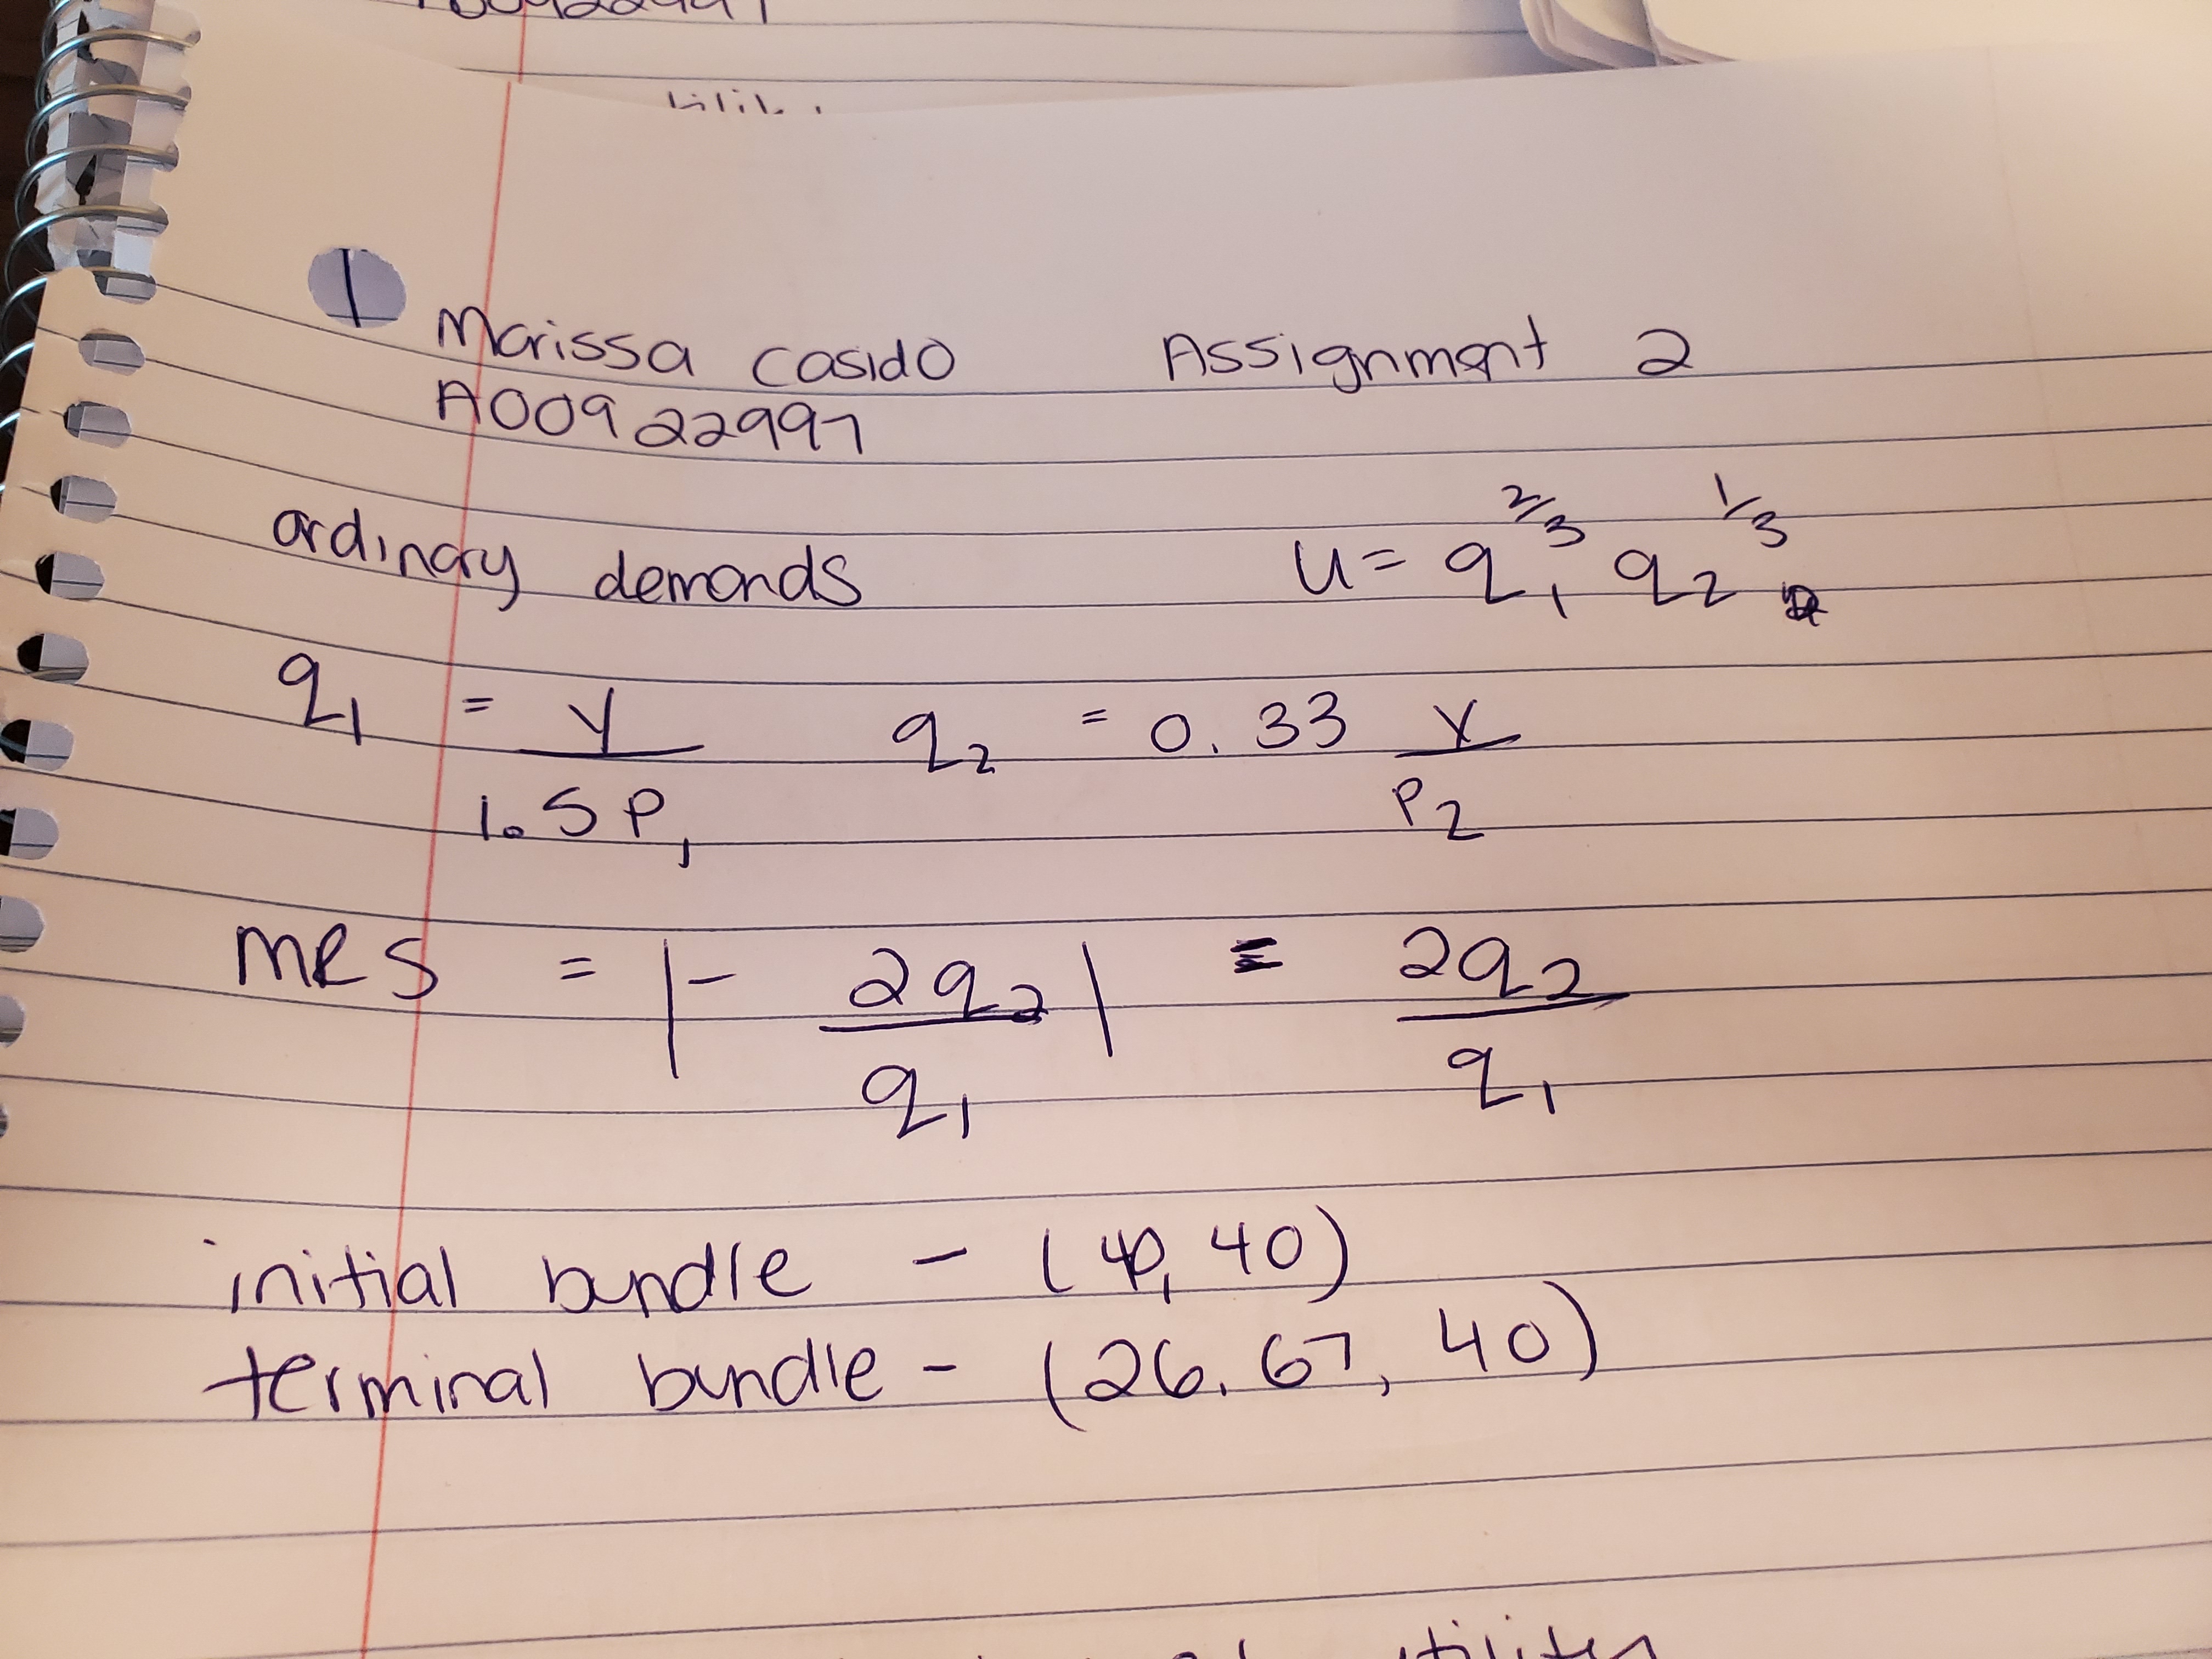 1
Marissa Casido Assignment 2
A00922997
ordinary demands U = q₁^2/3 q₂^1/3
q₁ = y / 1.5 P₁ q₂ = 0.33 y / P₂
MRS = |- 2q₂ / q₁ | = 2q₂ / q₁
initial bundle - (40, 40)
terminal bundle - (26.67, 40)
utility